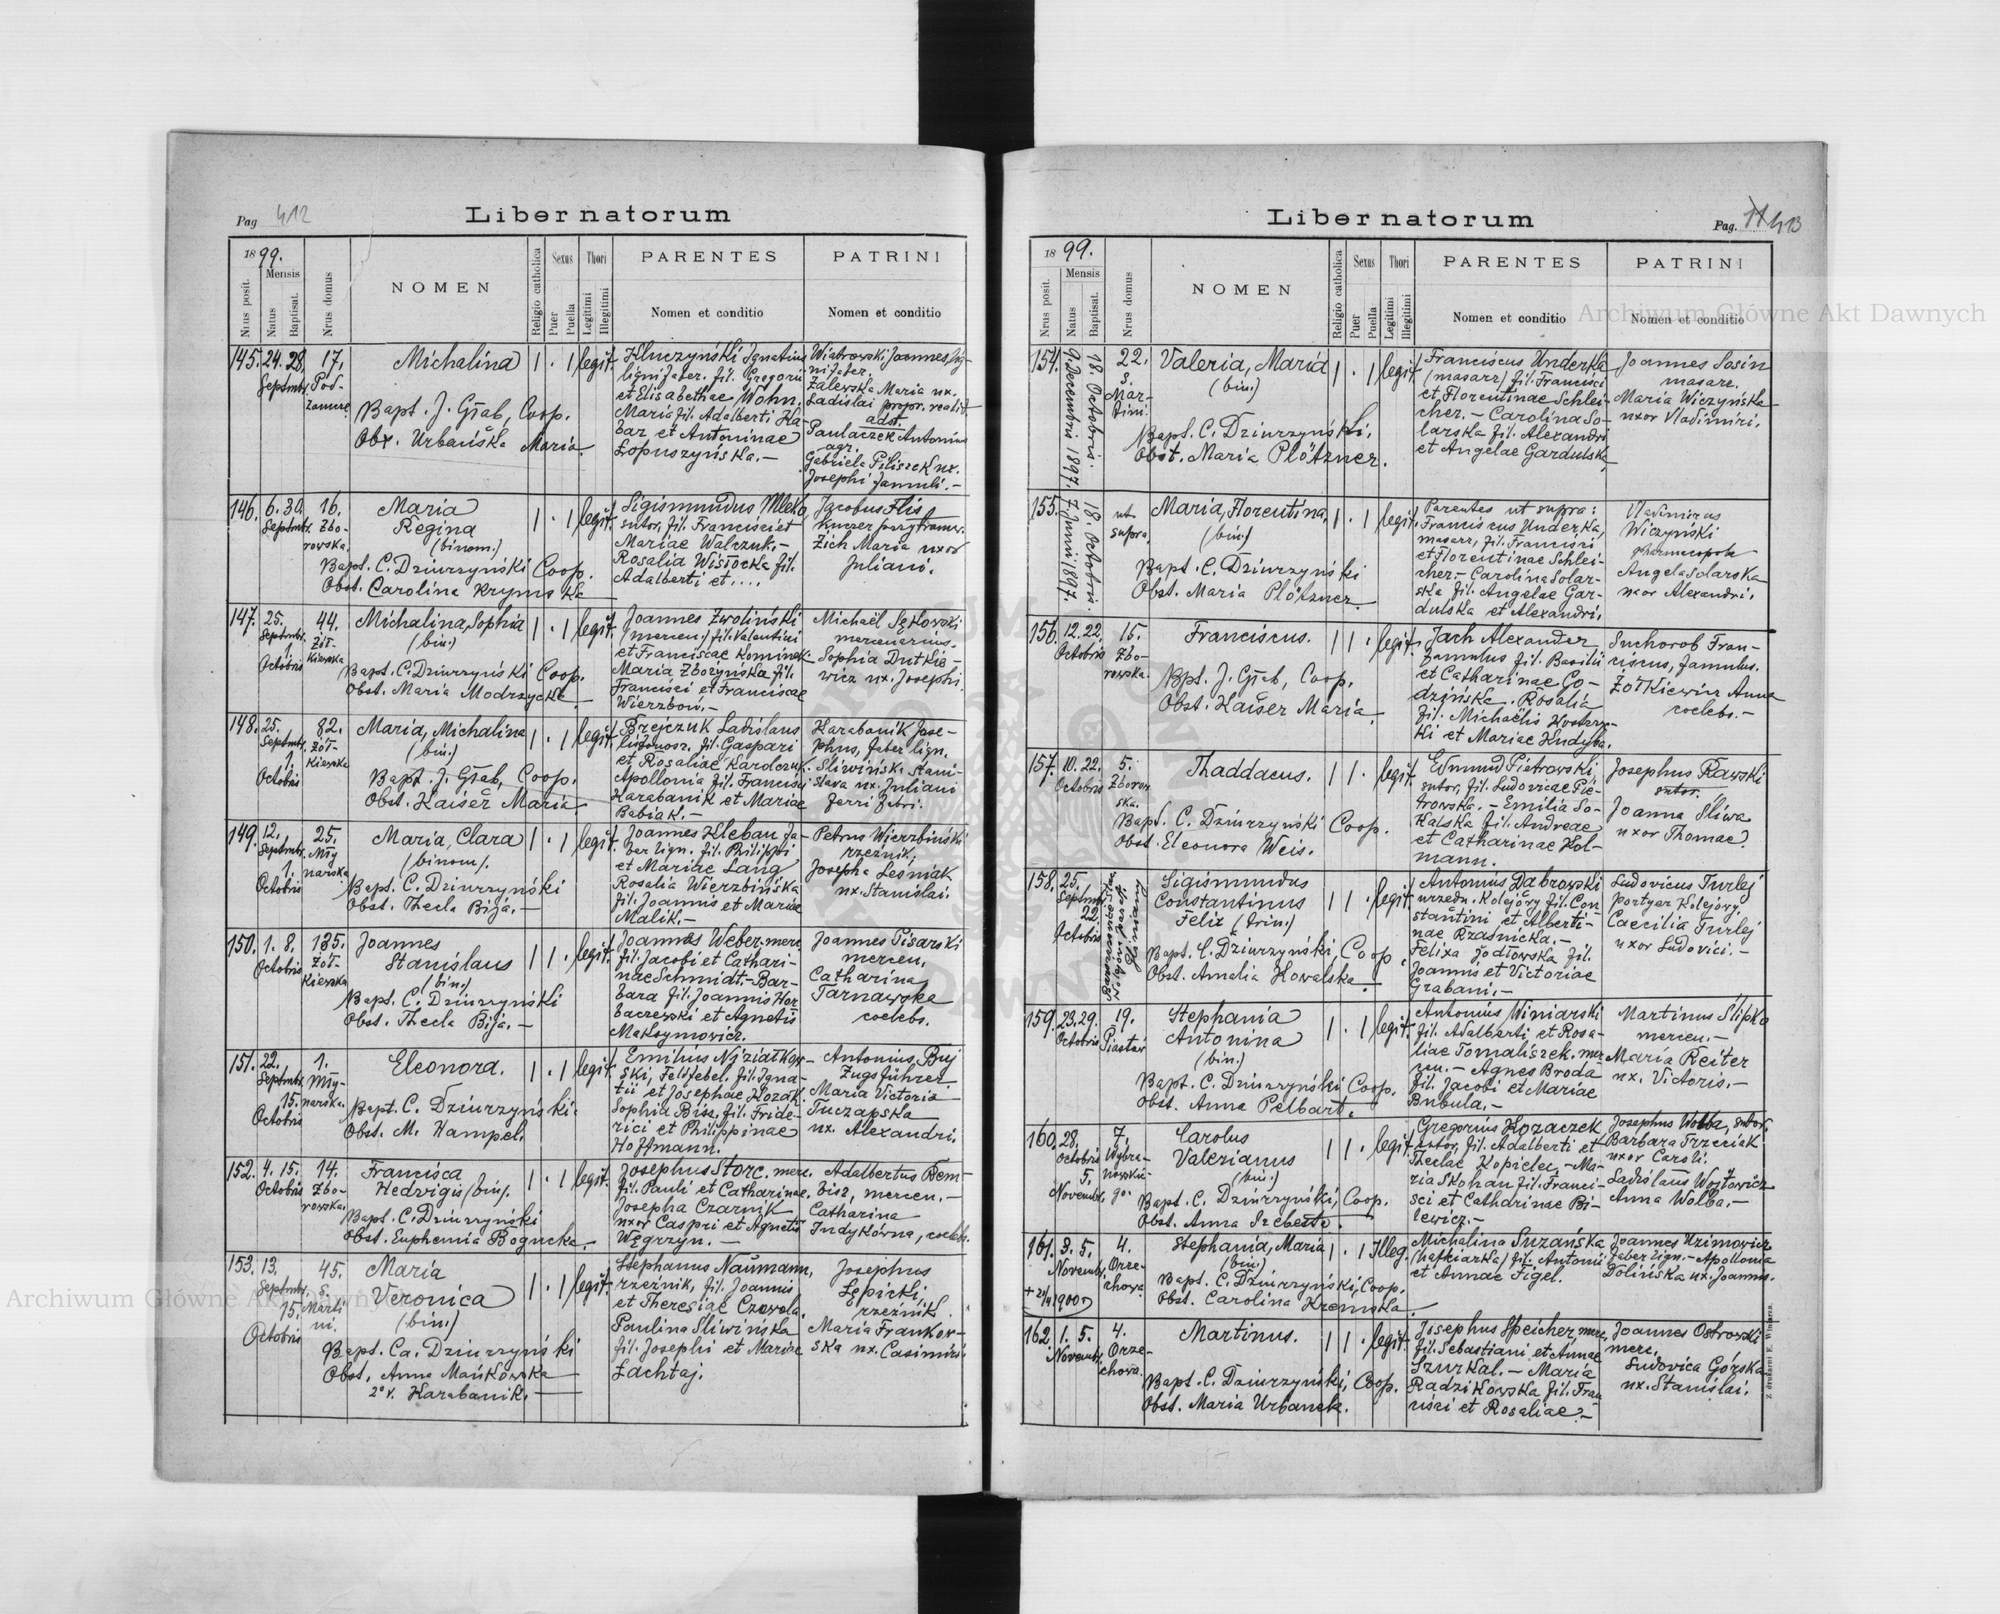 Pag 412
Liber natorum
1899.
Nrus posit.
Mensis
Natus
Baptisat.
Nrus domus
NOMEN
Religio catholica
Sexus
Puer
Puella
Thori
Legitimi
Illegitimi
PARENTES
Nomen et conditio
PATRINI
Nomen et conditio
145. 24. 28. Septmbr. 17. Pod-
Zamcze.
Michalina
1 · 1 legit.
Bapt. J. Grab, Coop.
Obx. Urbańska Maria.
Kluczyński Ignatius
lignifaber. fil. Gregorii
et Elisabethae Wohn.
Maria fil. Adalberti Ka-
bar et Antoninae
Łopuszyńska.—
Wiatrowski Joannes, lig-
nifaber.
Zalewska Maria ux.
Ladislai propr. realit.
adst.
Paulaczek Antonius
agr.
Gabriela Piliszek ux.
Josephi
146. 6. 30. Septmbr. 16. Zbo-
rowska.
Maria
Regina
(binom.)
1 · 1 legit.
Bapt. C. Dziurzyński Coop.
Obst. Carolina Kryms ka
Sigismundus Mleko
sutor, fil. Francisci et
Mariae Walczuk.—
Rosalia Wisłocka fil.
Adalberti et....
Jacobus Flis
Zich Maria uxor
Juliani.
147. 25. Septmbr. 1. Octobris 44. Żół-
kiewska
Michalina, Sophia
(bin.)
1 · 1 legit.
Bapt. C. Dziurzyński Coop.
Obst. Maria Modrzycka.
Joannes Zwoliński
(mercen.) fil. Valentini
et Franciscae Kominek.
Maria Zbożyńska fil.
Francisci et Franciscae
Wierzbow.—
Michaël Sętkowski
mercenarius.
Sophia Dutkie-
wicz ux. Josephi.
148. 25. Septmbr. 1. Octobris 82. Żół-
kiewska
Maria, Michalina
(bin.)
1 · 1 legit.
Bapt. J. Grab, Coop.
Obst. Kaiser Maria.
Brejczuk Ladislaus
listonosz. fil. Gaspari
et Rosaliae Karolczuk.
Apollonia fil. Francisci
Karabanik et Mariae
Babiak.—
Karabanik Jose-
phus, faber lign.
Śliwińsk. Stani-
slava ux. Juliani
ferri fabri.
149. 12. Septmbr. 1. Octobris 25. Mły
narska
Maria, Clara
(binom).
1 · 1 legit.
Bapt. C. Dziurzyński
Obst. Thecla Bija.—
Joannes Kleban fa-
ber lign. fil. Philippi
et Mariae Lang
Rosalia Wierzbińska
fil. Joannis et Mariae
Malik.—
Petrus Wierzbiński
rzeźnik.
Josepha Leśniak
ux. Stanislai.
150. 1. 8. Octobris 135. Żół-
kiewska
Joannes
Stanislaus
(bin.)
1 1 · legit.
Bapt. C. Dziurzyński
Obst. Thecla Bija.—
Joannes Weber. merc.
fil. Jacobi et Cathari-
nae Schmidt.—Bar-
bara fil. Joannis Hor
baczewski et Agnetis
Maksymowicz.
Joannes Pisarski
mercen.
Catharina
Tarnawska
coelebs.
151. 22. Septmbr. 15. Octobris 1. Mły-
narska.
Eleonora.
1 · 1 legit.
Bapt. C. Dziurzyński.
Obst. M. Hampel.
Emilius Niziałkow-
ski, Feldfebel. fil. Igna-
tii et Josephae Kozak.
Sophia Biss. fil. Fride-
rici et Philippinae
Hoffmann.
Antonius Buj
Zugsführer
Maria Victoria
Tuczapska
ux. Alexandri.
152. 4. 15. Octobris 14. Zbo-
rowska.
Francisca
Hedvigis (bin).
1 · 1 legit.
Bapt. C. Dziurzyński
Obst. Euphemia Bogucka.
Josephus Storc. merc.
fil. Pauli et Catharinae.
Josepha Czarnik
uxor Caspri et Agnetis
Węgrzyn.—
Adalbertus Dem-
bisz, mercen.—
Catharina
Indykówna, coelebs.
153. 13. Septmbr. 15. Octobris 45. S. Marti
ni.
Maria
Veronica
(bin.)
1 · 1 legit.
Bapt. Ca. Dziurzyński
Obst. Anna Mańkowska
2° v. Karabanik.—
Stephanus Naumann,
rzeźnik, fil. Joannis
et Theresiae Czowola.
Paulina Śliwińska
fil. Josephi et Mariae
Łachtaj.
Josephus
Łepicki,
rzeźnik.
Maria Frankow-
ska ux. Casimiri
Liber natorum
Pag. 413
1899.
Nrus posit.
Mensis
Natus
Baptisat.
Nrus domus
NOMEN
Religio catholica
Sexus
Puer
Puella
Thori
Legitimi
Illegitimi
PARENTES
Nomen et conditio
PATRINI
Nomen et conditio
154. 9. Decembris 1897. 18. Octobris. 22. S. Mar-
tini.
Valeria, Maria
(bin.)
1 · 1 legit.
Bapt. C. Dziurzyński.
Obst. Maria Plötzner.
Franciscus Underka
(masarz) fil. Francisci
et Florentinae Schlei-
cher.—Carolina So-
larska fil. Alexandri
et Angelae Gardulska
Joannes Sosin
masarz.
Maria Wiczyńska
uxor Vladimiri.
155. 7. Junii 1897. 18. Octobris. ut
supra.
Maria, Florentina.
(bin.)
1 · 1 legit.
Bapt. C. Dziurzyński
Obst. Maria Plötzner.
Parentes ut supra:
Franciscus Underka,
masarz, fil. Francisci
et Florentinae Schlei-
cher.—Carolina Solar-
ska fil. Angelae Gar-
dulska et Alexandri.
Vladimirus
Wiczyński
pharmacopola
Angela Solarska
uxor Alexandri.
156. 12. 22. Octobris 15. Zbo-
rowska.
Franciscus.
1 1 · legit.
Bapt. J. Grab, Coop.
Obst. Kaiser Maria.
Jach Alexander
famulus fil. Basilii
et Catharinae Go-
dzińska. Rosalia
fil. Michaëlis Kostery-
ki et Mariae Kudyba.
Suchorob Fran-
ciscus, famulus.
Żółkiewicz Anna
coelebs.—
157. 10. 22. Octobris 5. Zborow
ska.
Thaddaeus.
1 1 · legit.
Bapt. C. Dziurzyński Coop.
Obst. Eleonora Weis.
Edmund Pietrowski
sutor, fil. Ludovicae Pie-
trowska.—Emilia So-
kalska fil. Andreae
et Catharinae Kol-
mann.
Josephus Rawski
sutor.
Joanna Śliwa
uxor Thomae.
158. 25. Septmbr. 22. Octobris
Sigismundus
Constantinus
Felix (trin.)
1 1 · legit.
Bapt. C. Dziurzyński, Coop.
Obst. Amalia Kowalska.
Antonius Dąbrowski
urzędn. Kolejowy fil. Con
stantini et Alberti-
nae Rzaśnicka.—
Felixa Jodłowska fil.
Joannis et Victoriae
Grabani.—
Ludovicus Turlej
portyer Kolejowy
Caecilia Turlej
uxor Ludovici.—
159. 23. 29. Octobris 19. Piastów
Stephania
Antonina
(bin.)
1 · 1 legit.
Bapt. C. Dziurzyński Coop.
Obst. Anna Pelbart.
Antonius Winiarski
fil. Adalberti et Rosa-
liae Tomaliszek. mer
cen.—Agnes Broda
fil. Jacobi et Mariae
Bubula.—
Martinus Ślipko
mercen.—
Maria Reiter
ux. Victoris.—
160. 28. Octobris 5. Novembr. 7. Wybra-
nowskie-
go.
Carolus
Valerianus
(bin.)
1 1 · legit.
Bapt. C. Dziurzyński, Coop.
Obst. Anna
Gregorius Kozaczek
sutor, fil. Adalberti et
Theclae Kopielec.—Ma-
ria Skohan fil. Franci-
sci et Catharinae Bi-
lewicz.—
Josephus Wolba, sutor.
Barbara Trzeciak
uxor Caroli.
Ladislaus Wojtowicz
Anna Wolba.—
161. 3. 5. Novembr. 4. Orze-
chowa
Stephania, Maria
(bin.)
1 · 1 Illeg.
Bapt. C. Dziurzyński, Coop.
Obst. Carolina Kremska.
Michalina Suzańska
(hafciarka) fil. Antonii
et Annae Figel.
Joannes Uzimowicz
faber lign.—Apollonia
Dolińska ux. Joannis.
162. 1. 5. Novembr. 4. Orze-
chowa.
Martinus.
1 1 · legit.
Bapt. C. Dziurzyński, Coop.
Obst. Maria Urbanek.
Josephus Speicher, merc,
fil. Sebastiani et Annae
Szurkal.—Maria
Radzikowska fil. Fran-
cisci et Rosaliae.—
Joannes Ostrowski
merc.
Ludovica Górska
ux. Stanislai.
Z drukarni E. Winiarza.
Archiwum Główne Akt Dawnych
Archiwum Główne Akt Dawnych